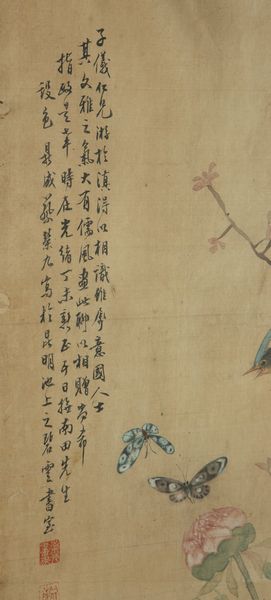 子儀仁兄游於滇得以相識雖屬意國人士
其文雅之氣大有儒風畫此聊以相贈尚希
指政是幸時在光緒丁未新正五日撫南田先生
設色 昆威蔡榮九寫於昆明池上之碧雲書室